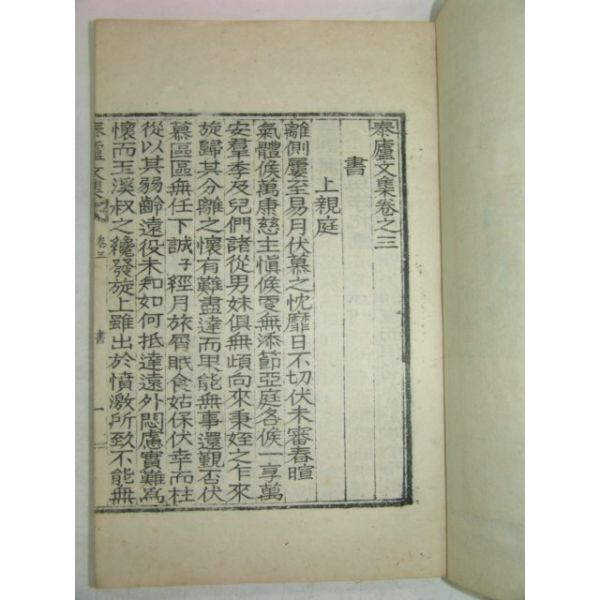 泰廬文集卷之三
書
上親庭
離側屢至易月伏慕之忱靡日不切伏未審春暄
氣體候萬康慈主愼候夬無添節亞庭各候一享萬
安羣季及兒們諸從男妹俱無頉向來秉姪之乍來
旋歸其分離之懷有難盡達而果能無事還覲否伏
慕區區無任下誠子經月旅屑眠食姑保伏幸而柱
從以其弱齡遠役未知如何抵達遠外悶慮實難爲
懷而玉溪叔之纔發旋上雖出於憤激所致不能無
泰廬文集
卷三
書
一